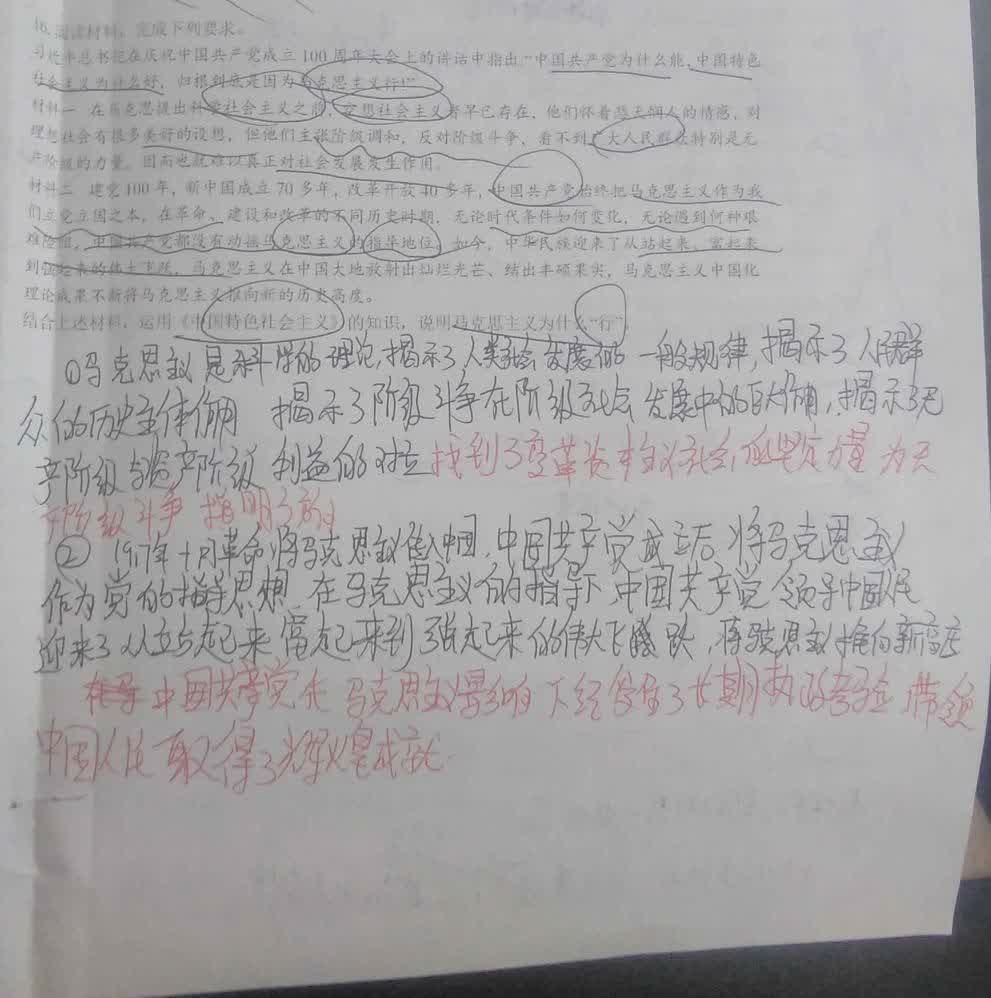 16. 阅读材料，完成下列要求。
习近平总书记在庆祝中国共产党成立100周年大会上的讲话中指出“中国共产党为什么能，中国特色
社会主义为什么好，归根到底是因为马克思主义行!”
材料一 在马克思提出科学社会主义之前，空想社会主义者早已存在，他们怀着悲天悯人的情感，对
理想社会有很多美好的设想，但他们主张阶级调和，反对阶级斗争，看不到广大人民群众特别是无
产阶级的力量。因而也就难以真正对社会发展发生作用。
材料二 建党100年，新中国成立70多年，改革开放40多年，中国共产党始终把马克思主义作为我
们立党立国之本，在革命、建设和改革的不同历史时期，无论时代条件如何变化，无论遇到何种艰
难险阻，中国共产党都没有动摇马克思主义的指导地位。如今，中华民族迎来了从站起来、富起来
到强起来的伟大飞跃，马克思主义在中国大地放射出灿烂光芒、结出丰硕果实，马克思主义中国化
理论成果不断将马克思主义推向新的历史高度。
结合上述材料，运用《中国特色社会主义》的知识，说明马克思主义为什么“行”。
①马克思主义是科学的理论，揭示了人类社会发展的一般规律，揭示了人民群
众的历史主体作用 揭示了阶级斗争在阶级社会发展中的巨大作用，揭示了无
产阶级与资产阶级利益的对立 找到了变革资本主义社会的坚定力量 为无
产阶级斗争指明了方向
② 1917年十月革命将马克思主义传入中国，中国共产党成立后 将马克思主义
作为党的指导思想 在马克思主义的指导下 中国共产党领导中国人民
迎来了从站起来富起来到强起来的伟大飞跃，将马克思主义推向新高度
中国共产党在马克思主义影响下经受住了长期执政考验 带领
中国人民取得了辉煌成就.